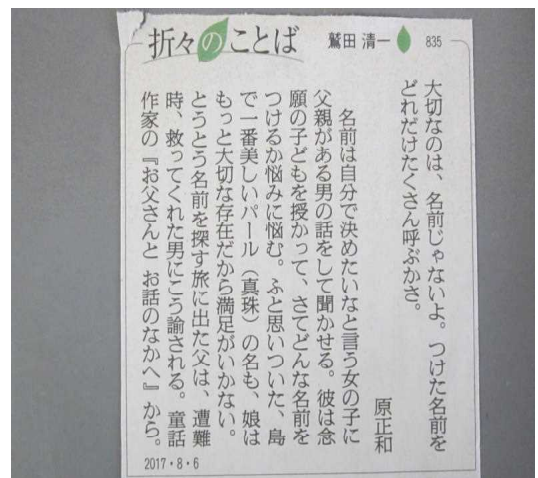 折々のことば 鷲田 清一 835
大切なのは、名前じゃないよ。つけた名前を
どれだけたくさん呼ぶかさ。
原正和
名前は自分で決めたいなと言う女の子に
父親がある男の話をして聞かせる。彼は念
願の子どもを授かって、さてどんな名前を
つけるか悩みに悩む。ふと思いついた、島
で一番美しいパール（真珠）の名も、娘は
もっと大切な存在だから満足がいかない。
とうとう名前を探す旅に出た父は、遭難
時、救ってくれた男にこう諭される。童話
作家の『お父さんと お話のなかへ』から。
2017・8・6